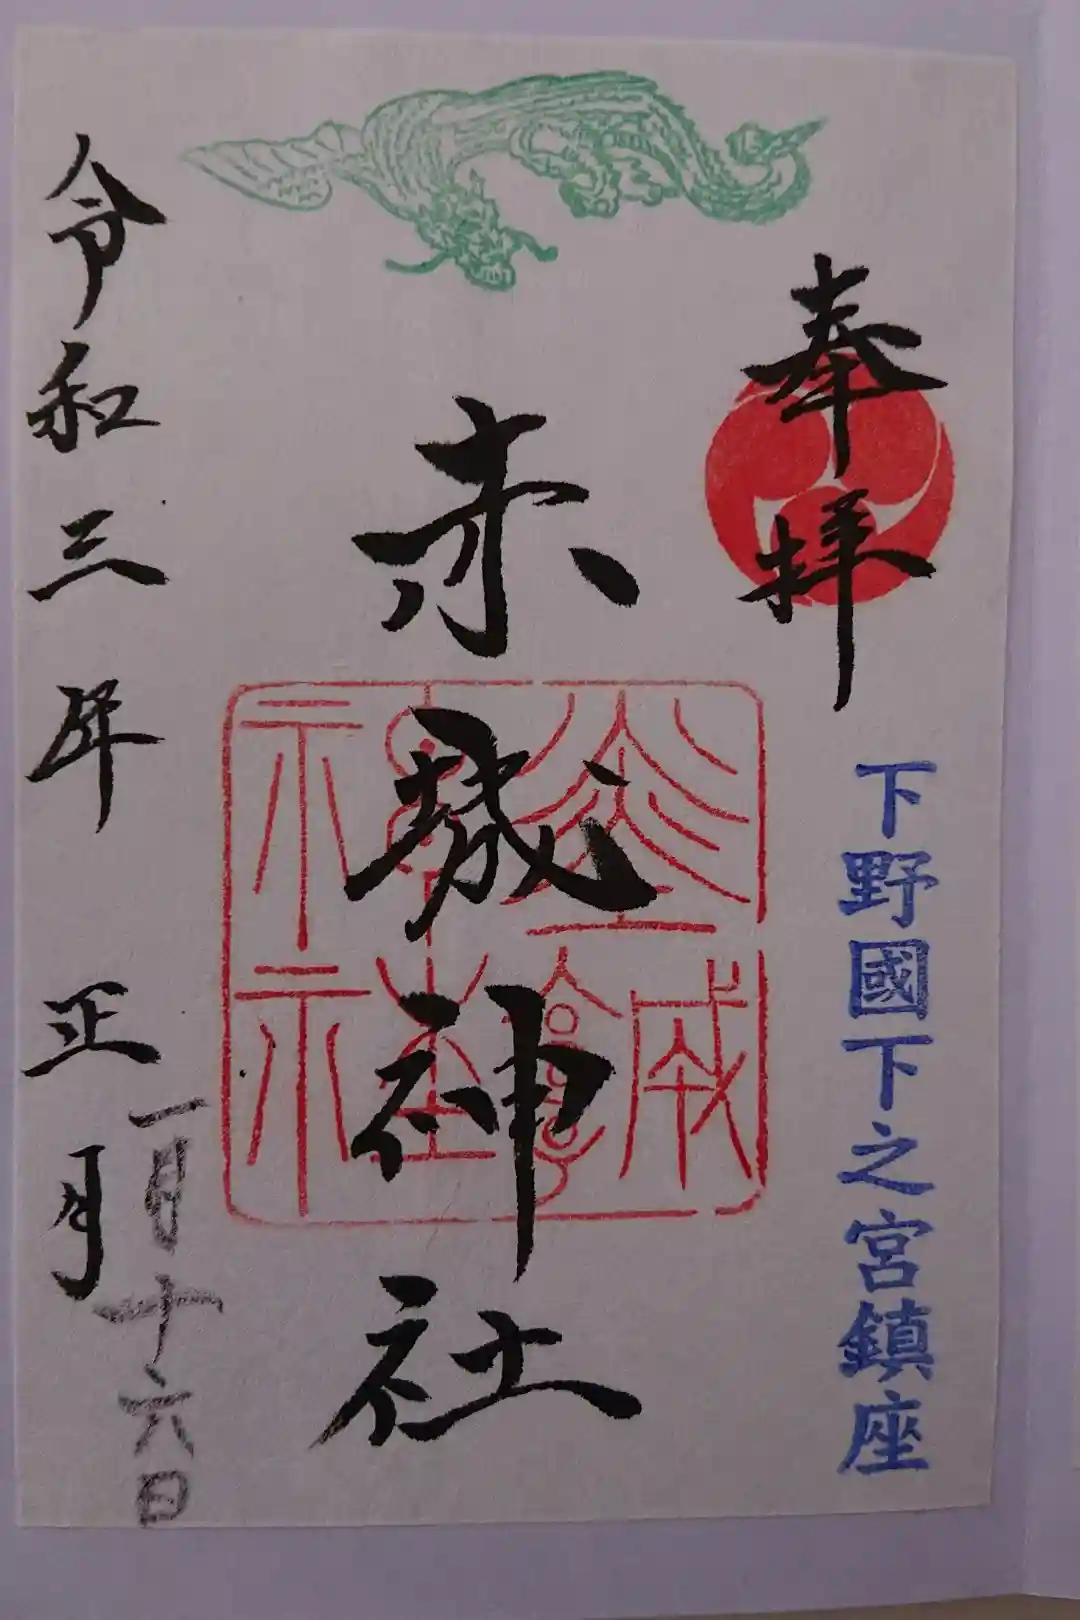 奉拝
下野國下之宮鎮座
赤城神社
赤城
神社
令和三年 正月
一月十六日